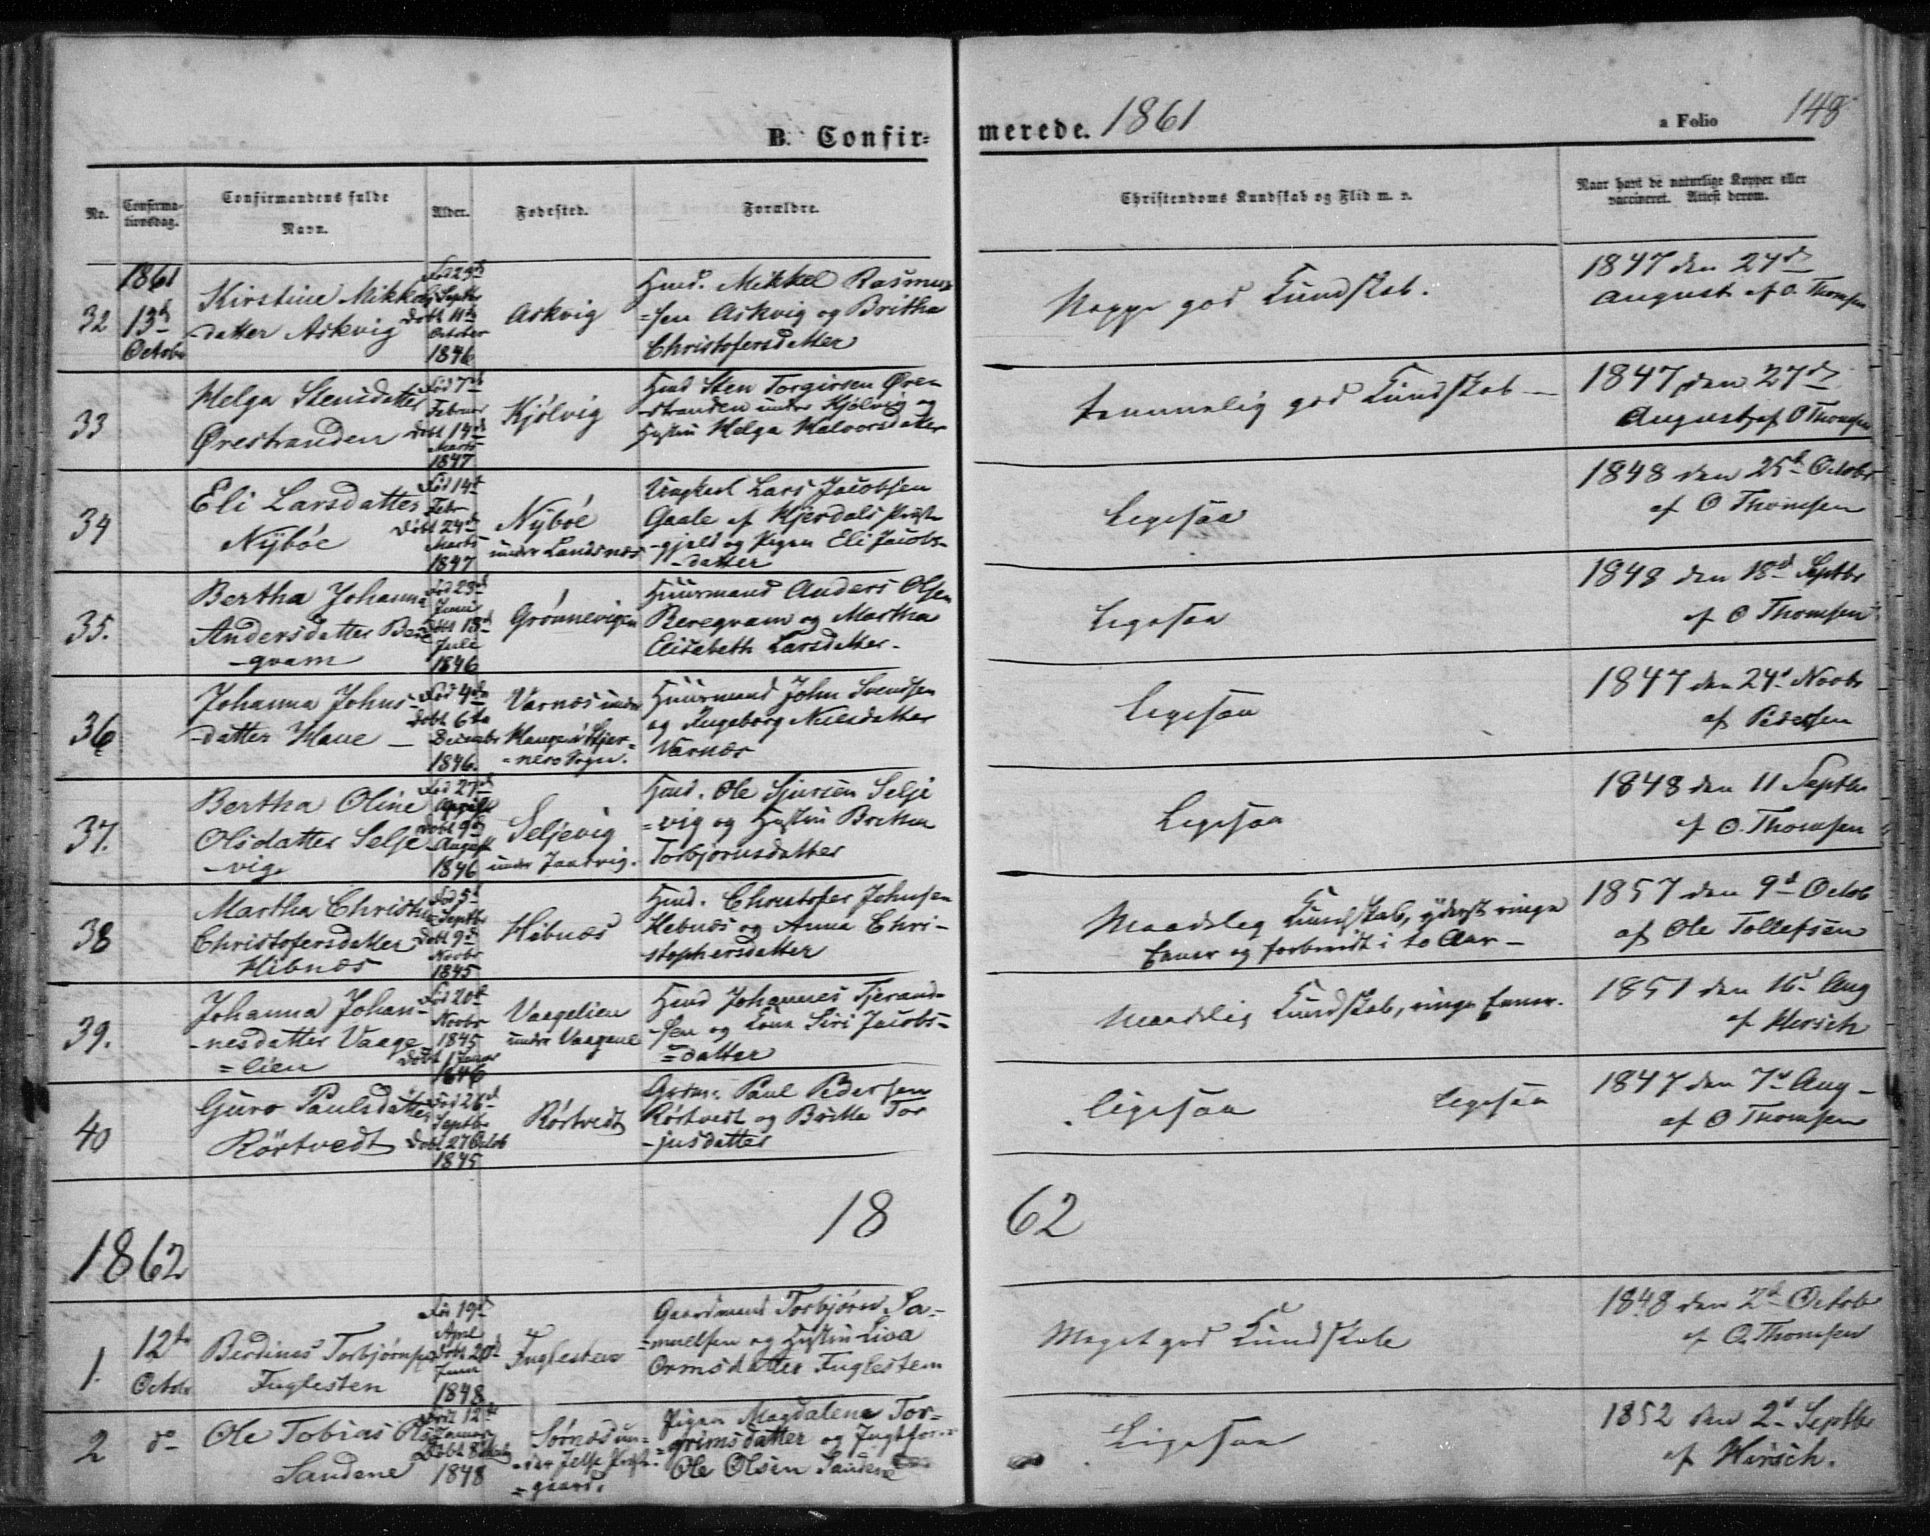 B. Confir=
merede. 1861
a Folio 148
No.
Confirma-
tionsdag.
Confirmandens fulde
Navn.
Alder.
Fødested.
Forældre.
Christendoms Kundskab og Flid m. v.
Naar havt de naturlige Kopper eller
vaccineret. Attest derom.
32
1861
13d
Octobr
Kirstine Mikkels
-datter Askvig
Fød 23d
Septbr
Døbt 11te
October
1846
Askvig
Huusd. Mikkel Rasmus
=sen Askvig og Britha
Christofersdatter
god Kundskab.
1847 den 24d
August af O. Thomsen
33
Helga Stensdatter
Ørestranden
Fød 7d
Februar
Døbt 14d
Marts
1847
Kjølvig
Huusd Sten Torgirsen Øre-
-stranden under Kjølvig og
Hustru Helga Halvorsdatter
temmelig god Kundskab
1847 den 27d
August af O Thomsen
34
Eli Larsdatter
Nÿbøe
Fød 14d
Febr
Døbt 24d
Marts
1847
Nÿbøe
under Landsnæs
Ungkarl Lars Jacobsen
Gaale af Hjerdals Præste
-gjeld og Pigen Eli Jacobs-
-datter
Ligesaa
1848 den 25d Octobr
af O Thomsen
35.
Bertha Johanna
Andersdatter Bere
-gvam
Fød 23d
Juni
Døbt 18d
Juli
1846
Grønnevigen
Huurmand Anders Olsen
Beregvam og Martha
Elisabeth Larsdatter.
Ligesaa
1848 den 18d Septbr
af O Thomsen
36
Johanna Johns-
-datter Hane —
Fød 4de
Døbt 6te
Decembr
1846.
Varnæs under
Hangen i Hjer-
-nerø Sogn.
Huurmand John Svendsen
og Ingeborg Nilsdatter
Varnæs
Ligesaa
1847 den 24d Novbr
af Pedersen
37.
Bertha Oline
Olsdatter Selje
-vig
Fød 27d
April
Døbt 9d
August
1846
Seljevig
under Jaarvig.
Huusd. Ole Sjursen Selje
=vig og Hustru Britha
Torbjørnsdatter
Ligesaa
1848 den 11 Septbr
af O. Thomsen
38
Martha Christine
Christofersdatter
Hebnæs
Fød 5d
Septbr
Døbt 9d
Novbr
1845
Hebnæs
Huusd. Christofer Johnsen
Hebnæs og Anna Chri-
stophersdatter
Maadelig Kundskab, yderst ringe
Evner og forberedt i to Aar —
1857 den 9d Octob
af Ole Tollefsen
39.
Johanna Johan-
-nesdatter Vaage
=lien
Fød 20d
Novbr
1845
Døbt 1 Januar
1846
Vaagelien
under Vaagene
Huusd Johannes Tjerand-
-sen og Kone Siri Jacobs-
=datter
Maadelig Kundskab, ringe Evner.
1851 den 16d Aug
af Hirsch
40
Guro Paulsdatter
Rørtvedt
Fød 28d
Septbr
Døbt 27 Octob
1845
Rørtvedt
Grdm: Paul Pedersen
Rørtvedt og Britha Tor
-jusdatter
Ligesaa Ligesaa
1847 den 7d Aug -
af O Thomsen
1862
18 62
1.
12te
Octobr
Berdines Torbjørnsen
Fuglesten
Fød 19d
April
Døbt 20d
Juni
1848
Fuglesten
Gaardmand Torbjørn Sa-
-muelsen og Hustru Lisa
Ormsdatter Fuglesten
Meget god Kundskab
1848 den 2d Octobr
af O. Thomsen
2
do
Ole Tobias
Sandene
Fød 12te
Januar
Døbt 8
1848
Sørnæs un-
-der Jelse Præste-
=gaard.
Pigen Magdalena Tor=
=grimsdatter og Ungkar
Ole Olsen Sandene
Ligesaa
1852 den 2d Septbr
af Hirsch.